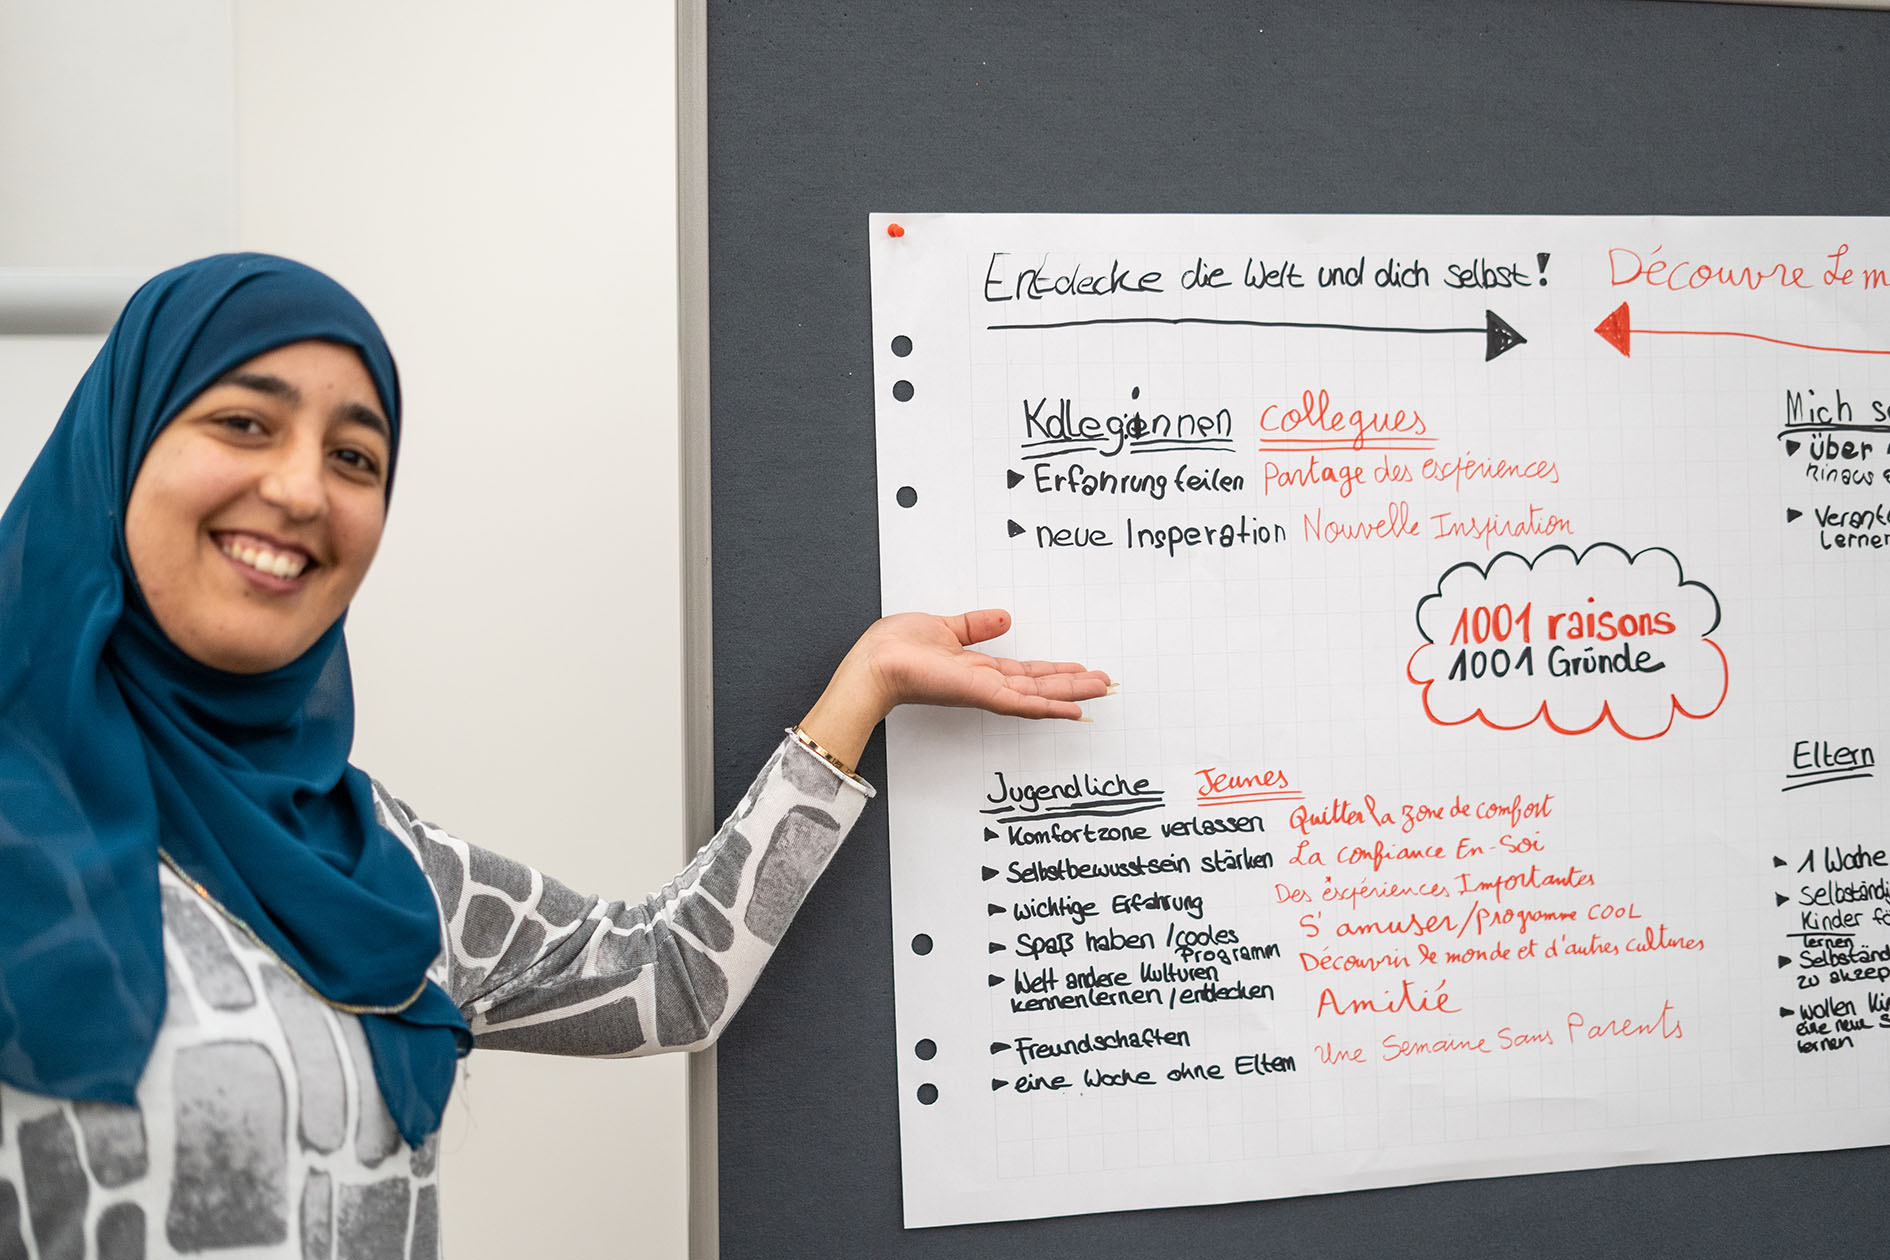 Entdecke die Welt und dich selbst!
Découvre Le m
Kolleginnen Collegues
Erfahrung teilen Partage des expériences
neue Insperation Nouvelle Inspiration
Mich s
über
hinaus
Verant
Lernen
1001 raisons
1001 Gründe
Jugendliche Jeunes
Komfortzone verlassen Quitter la zone de comfort
Selbstbewusstsein stärken La confiance En-Soi
wichtige Erfahrung Des expériences Importantes
Spaß haben / cooles S'amuser/Programme COOL
Programm
Welt andere Kulturen Découvrir le monde et d'autres cultures
kennenlernen / entdecken
Freundschaften Amitié
eine Woche ohne Eltern Une Semaine Sans Parents
Eltern
1 Woche
Selbständi
Kinder fö
lernen
Selbständ
zu akzep
wollen Ki
eine neue S
lernen